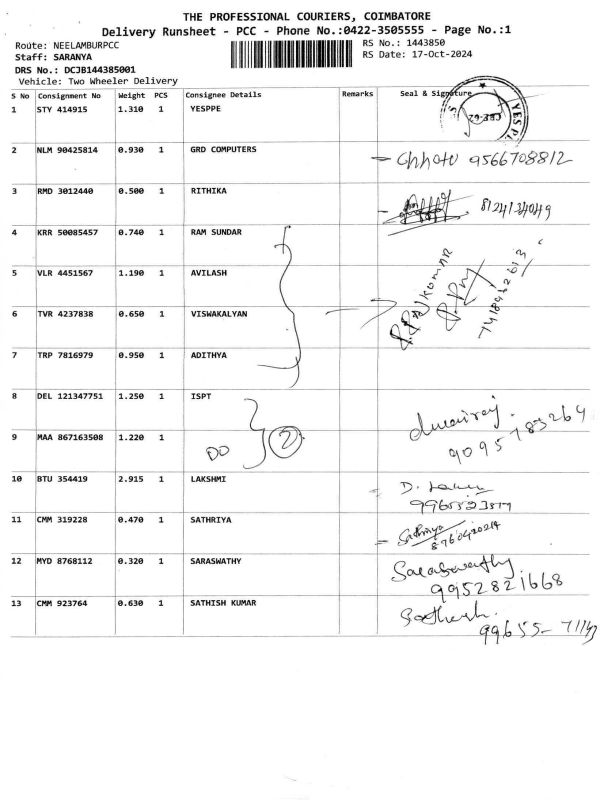 THE PROFESSIONAL COURIERS, COIMBATORE
Delivery Runsheet - PCC - Phone No.:0422-3505555 - Page No.:1
Route: NEELAMBURPCC RS No.: 1443850
Staff: SARANYA RS Date: 17-Oct-2024
DRS No.: DCJB144385001
Vehicle: Two Wheeler Delivery
S No Consignment No Weight PCS Consignee Details Remarks Seal & Signature
1 STY 414915 1.310 1 YESPPE
2 NLM 90425814 0.930 1 GRD COMPUTERS
- Chhotu 9566708812
3 RMD 3012440 0.500 1 RITHIKA
8124134049
4 KRR 50085457 0.740 1 RAM SUNDAR
5 VLR 4451567 1.190 1 AVILASH
6 TVR 4237838 0.650 1 VISWAKALYAN
7 TRP 7816979 0.950 1 ADITHYA
8 DEL 121347751 1.250 1 ISPT
9 MAA 867163508 1.220 1
DO 2
9095783264
10 BTU 354419 2.915 1 LAKSHMI
11 CMM 319228 0.470 1 SATHRIYA
Sathriya
8760420214
12 MYD 8768112 0.320 1 SARASWATHY
Saraswathy
9952821668
13 CMM 923764 0.630 1 SATHISH KUMAR
Sathish.
99655-71143